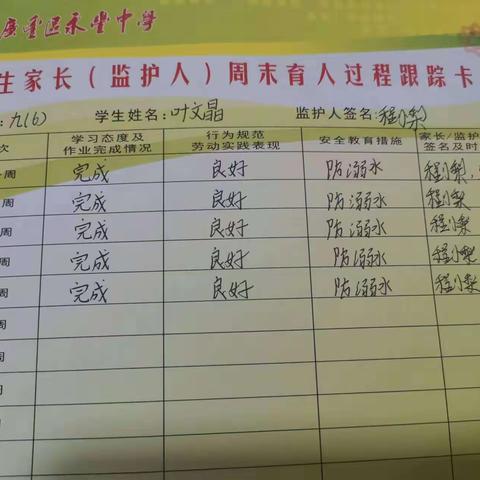 广丰区永丰中学
生家长(监护人)周末育人过程跟踪卡
:九(6) 学生姓名:叶文晶 监护人签名:程小梨
次 学习态度及作业完成情况 行为规范劳动实践表现 安全教育措施 家长/监护签名及时
周 完成 良好 防溺水 程小梨
周 完成 良好 防溺水 程小梨
周 完成 良好 防溺水 程小梨
周 完成 良好 防溺水 程小梨
周 完成 良好 防溺水 程小梨
周
周
周
周